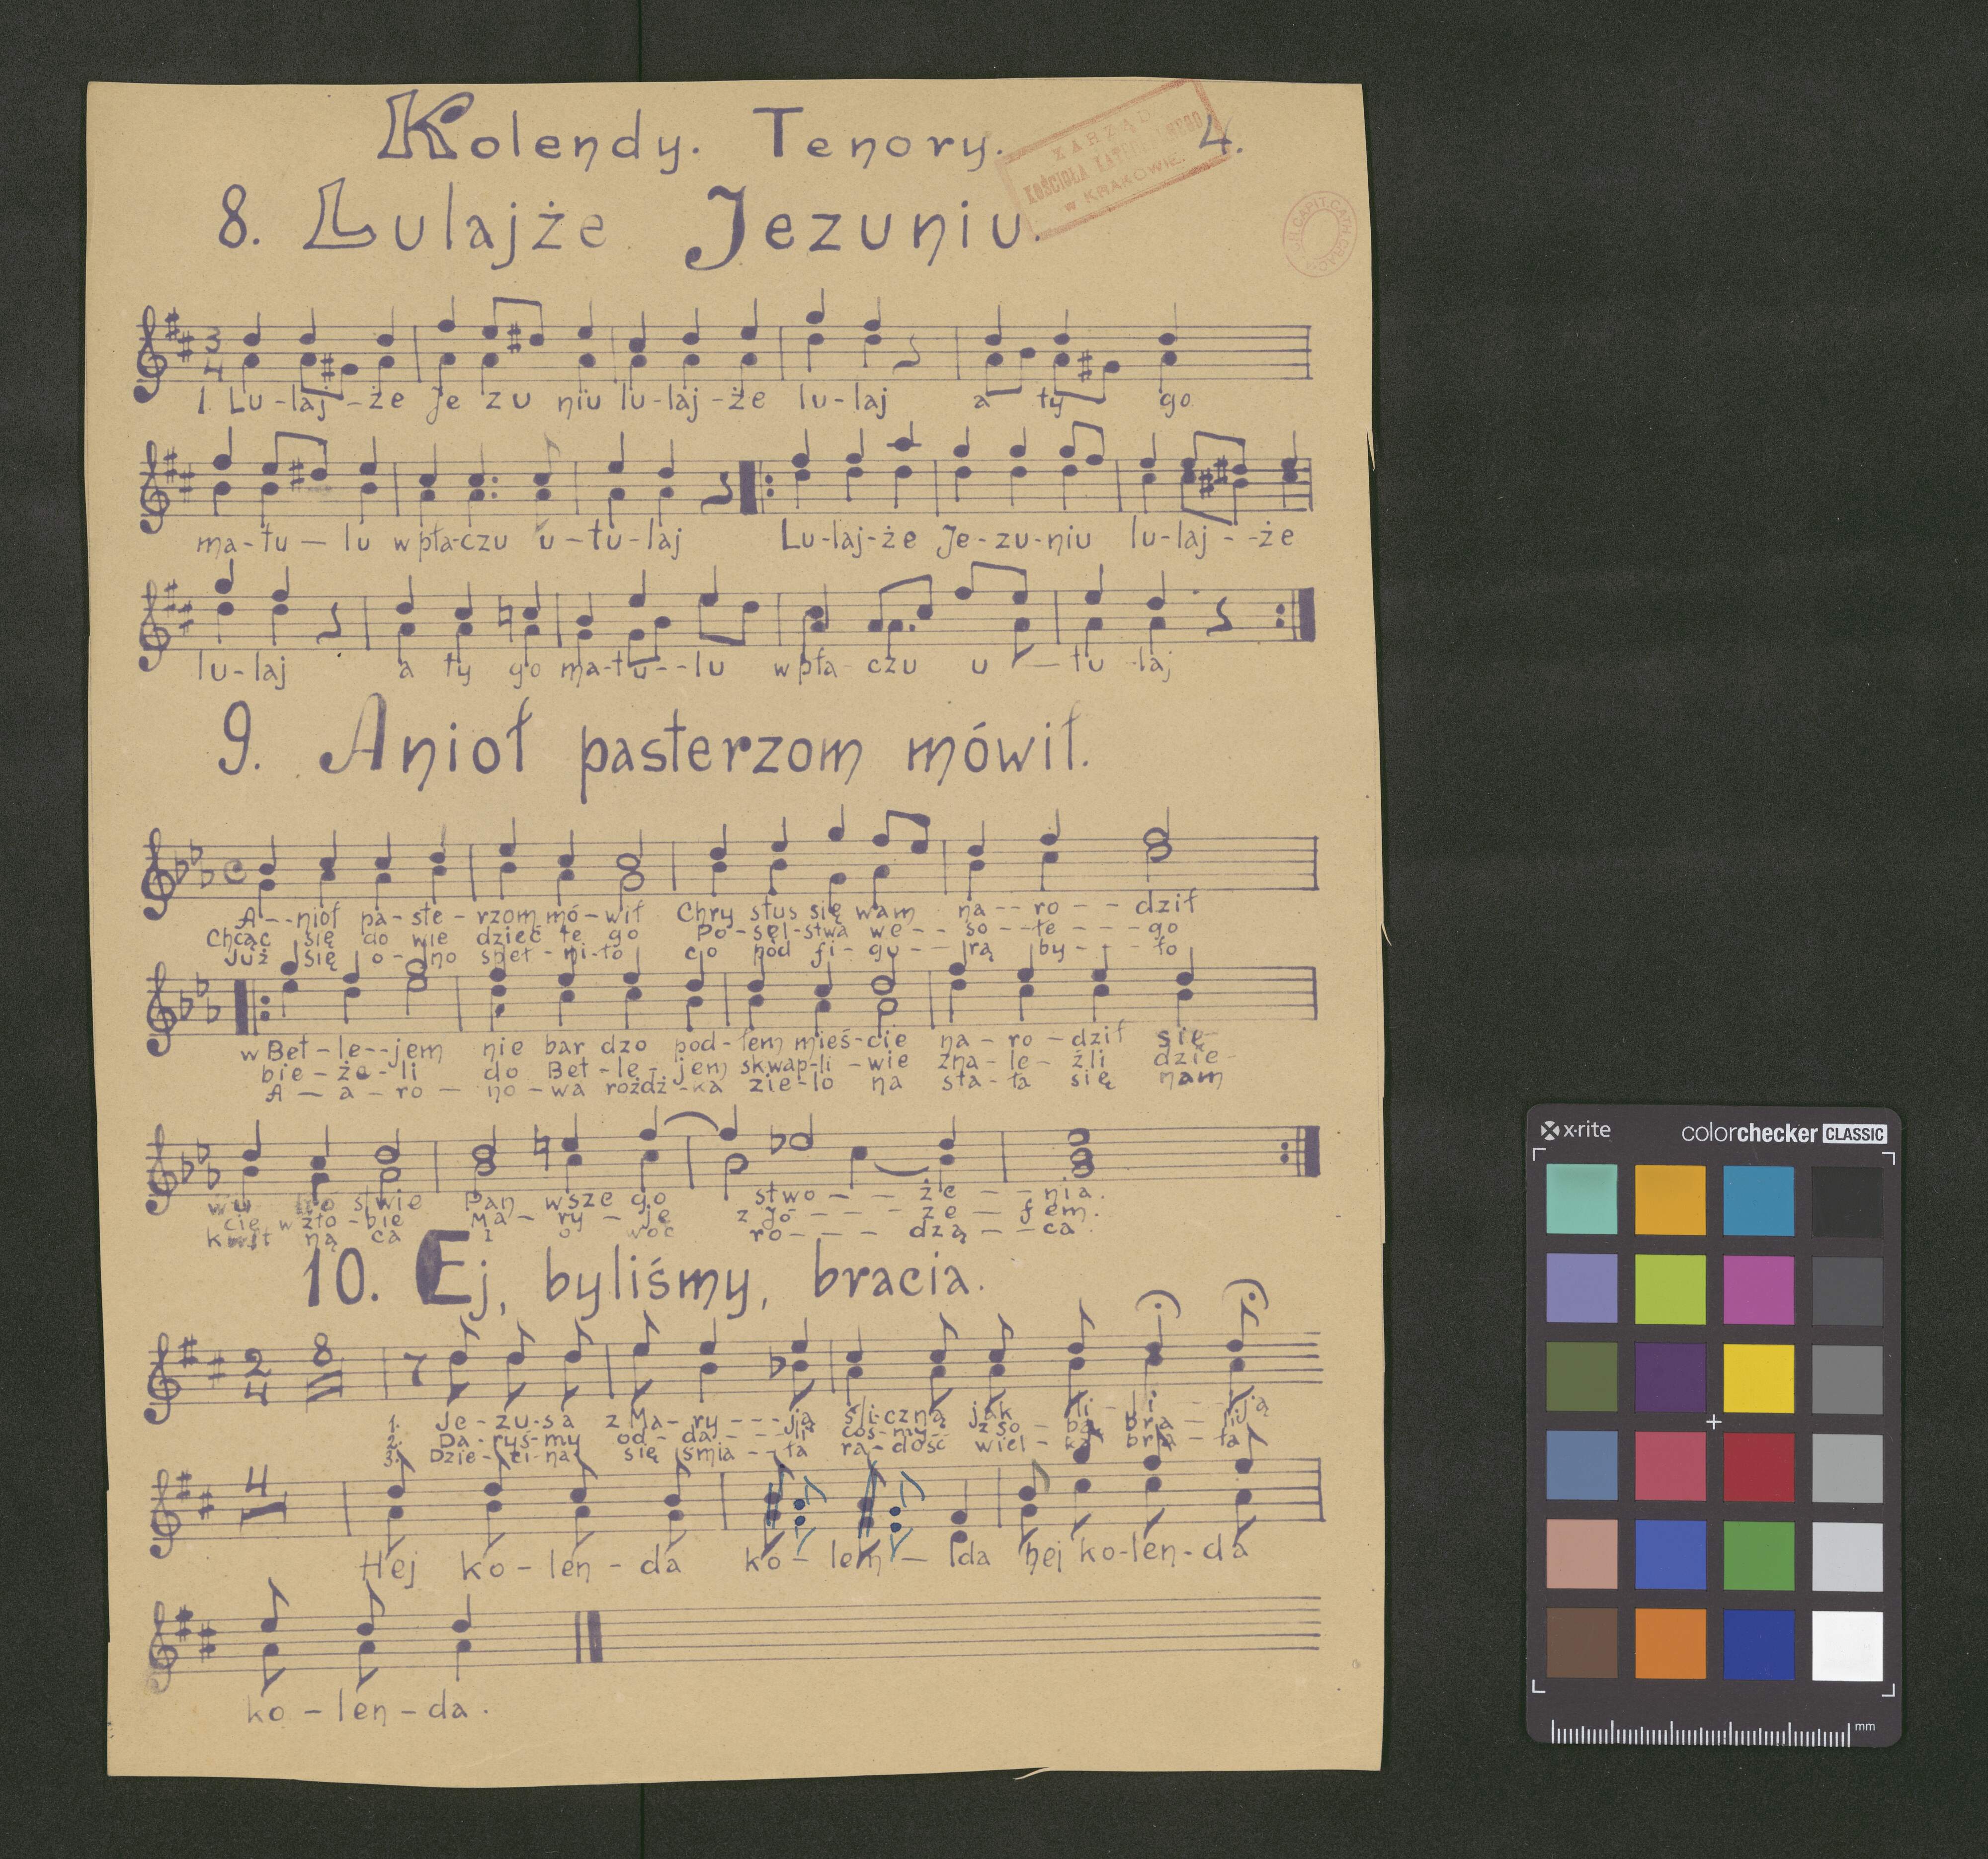 Kolendy. Tenory. 4.
ZARZĄD
KOŚCIOŁA KATEDRALNEGO
w KRAKOWIE.
8. Lulajże Jezuniu.
CH. CAPIT. CATH. CRAC
3
4
1. Lu-laj--że Je zu niu lu-laj-że lu-laj a ty go
ma-tu-lu w pła-czu u-tu-laj Lu-laj-że Je-zu-niu lu-laj--że
lu-laj a ty go ma-tu--lu w pła-czu u - tu-laj
9. Anioł pasterzom mówił.
A--nioł pa-ste-rzom mó-wił Chry stus się wam na--ro--dził
Chcąc się do wie dzieć te go Po-sel-stwa we--so--łe---go
Już się o-no speł-ni-ło co pod fi-gu--rą by---ło
w Bet-le--jem nie bar dzo pod-łem mieś-cie na-ro-dził się
bie-że-li do Bet-le-jem skwap-li-wie zna-le-źli dzie-
A-a-ro-no-wa rożdż-ka zie-lo na sta-ła się nam
wu bo stwie Pan wsze go stwo--że--nia.
cię w żło-bie Ma-ry-ję z Jó----ze-fem.
kwit ną ca i o woc ro---dzą--ca.
10. Ej, byliśmy, bracia.
2 8
4
1. Je-zu-sa z Ma-ry---ją śli-czną jak li-li--ją
2. Da-ryś-my od-da---li coś-my z so-bą bra-li
3. Dzie-ci-na się śmia--ła ra-dość wiel-ką bra-ła
4
Hej ko-len-da ko-len-da hej ko-len-da
ko-len-da.
x·rite colorchecker CLASSIC
mm